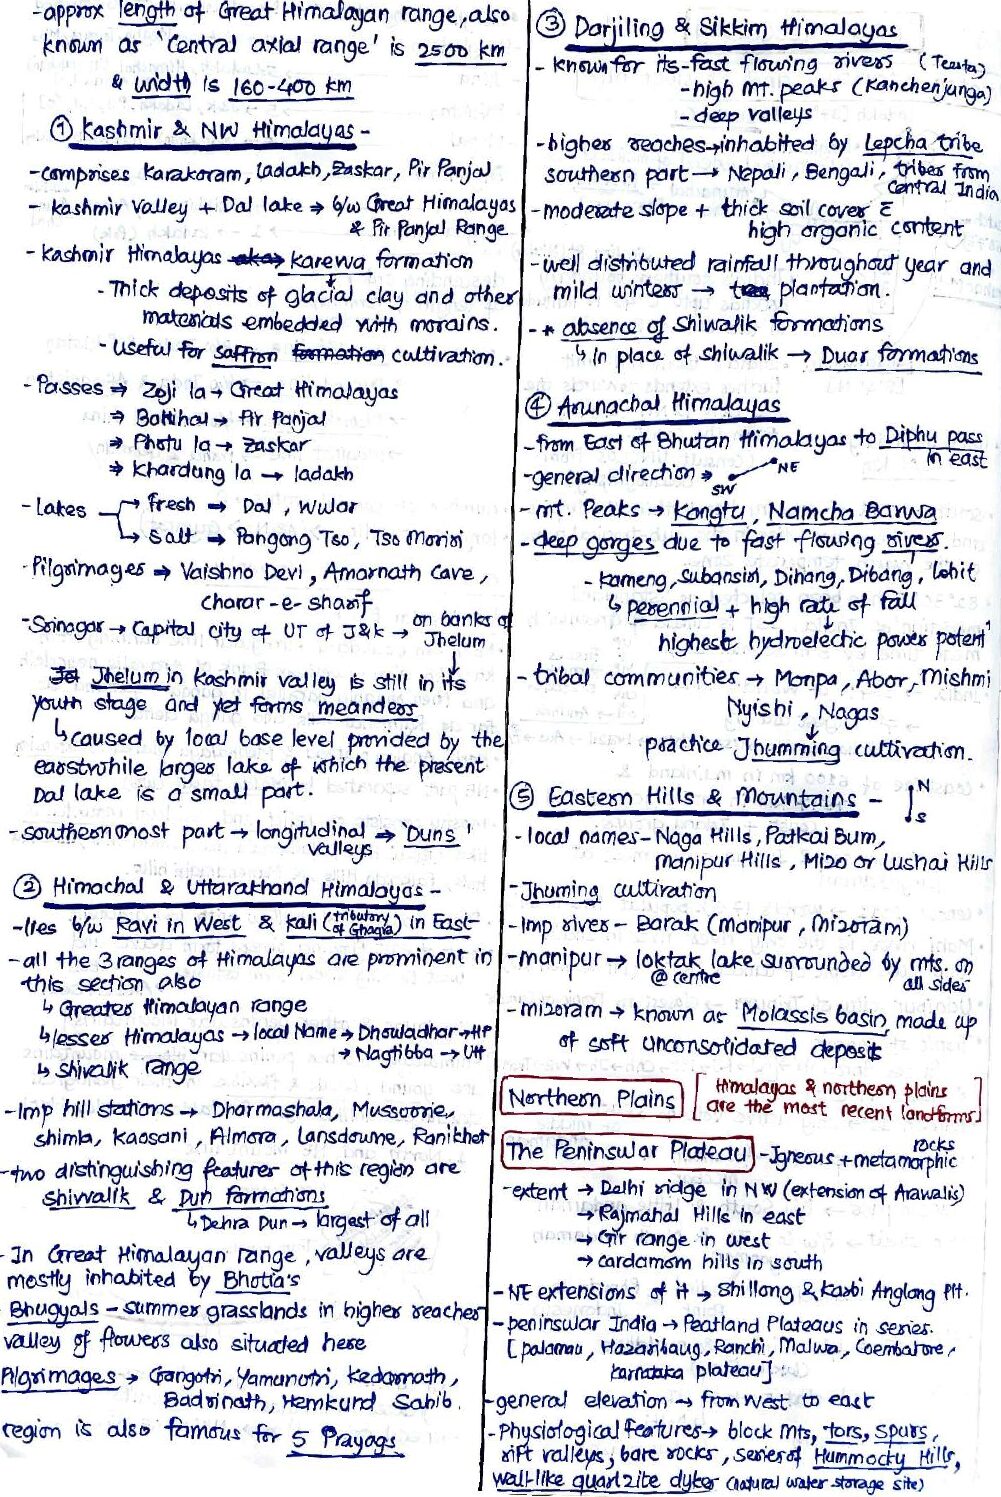 -approx length of Great Himalayan range, also
known as 'Central axial range' is 2500 km
& width is 160-400 km
① Kashmir & NW Himalayas -
-comprises Karakoram, Ladakh, Zaskar, Pir Panjal
- Kashmir Valley + Dal lake → b/w Great Himalayas
& Pir Panjal Range
- Kashmir Himalayas aka → Karewa formation
- Thick deposits of glacial clay and other
materials embedded with morains.
- useful for saffron formation cultivation.
- Passes → Zoji la → Great Himalayas
⇒ Banihal → Pir Panjal
⇒ Photu la → Zaskar
⇒ Khardung la → ladakh
- Lakes → fresh → Dal, Wular
→ Salt → Pangong Tso, Tso Moriri
-Pilgrimages → Vaishno Devi, Amarnath Cave,
Charar-e-sharif
-Srinagar → Capital city of UT of J&K → on banks of
Jhelum
Jhelum in Kashmir valley is still in its
youth stage and yet forms meanders
↳ caused by local base level provided by the
earstwhile larger lake of which the present
Dal lake is a small part.
-southernmost part → longitudinal valleys → 'Duns'
② Himachal & Uttarakhand Himalayas -
-lies b/w Ravi in West & Kali (tributary of Ghagra) in East
-all the 3 ranges of Himalayas are prominent in
this section also
↳ Greater Himalayan range
↳ lesser Himalayas → local Name → Dhauladhar → HP
→ Nagtibba → UH
↳ Shivalik range
-Imp hill stations → Dharmashala, Mussoorie,
Shimla, Kaosani, Almora, Lansdowne, Ranikhet
-two distinguishing features of this region are
Shivvalik & Dun formations
↳ Dehra Dun → largest of all
- In Great Himalayan range, valleys are
mostly inhabited by Bhotia's
Bhugyals - summer grasslands in higher reaches
valley of flowers also situated here
Pilgrimages → Gangotri, Yamunotri, Kedarnath,
Badrinath, Hemkund Sahib.
region is also famous for 5 Prayags
③ Darjiling & Sikkim Himalayas
- known for its - fast flowing rivers (Teesta)
-high mt. peaks (Kanchenjunga)
- deep valleys
-higher reaches → inhabited by Lepcha tribe
southern part → Nepali, Bengali, tribes from
Central India
-moderate slope + thick soil cover c̄
high organic content
-well distributed rainfall throughout year and
mild winters → tea plantation.
- * absence of Shiwalik formations
↳ In place of shiwalik → Duar formations
④ Arunachal Himalayas
-from East of Bhutan Himalayas to Diphu pass
in east
-general direction → SW NE
-mt. Peaks → Kangtu, Namcha Barwa
-deep gorges due to fast flowing rivers.
- Kameng, Subansiri, Dihang, Dibang, Lohit
↳ perennial + high rate of fall
highest hydroelectic power potent'
-tribal communities → Monpa, Abor, Mishmi
Nyishi, Nagas
practice Jhumming cultivation.
⑤ Eastern Hills & Mountains - N
S
-local names - Naga Hills, Patkai Bum,
Manipur Hills, Mizo or Lushai Hills
-Jhuming cultivation
-Imp river - Barak (Manipur, Mizoram)
-manipur → loktak lake surrounded by mts. on
@ centre all sides
-mizoram → known as Molassis basin, made up
of soft unconsolidated deposits
Northern Plains [Himalayas & northern plains
are the most recent landforms]
The Peninsular Plateau - Igneous + metamorphic rocks
-extent → Delhi ridge in NW (extension of Aravalis)
→ Rajmahal Hills in east
→ Gir range in west
→ cardamom hills in south
- NE extensions of it → Shillong & Karbi Anglong Plt.
-peninsular India → Peatland Plateaus in series.
[palamau, Hazaribaug, Ranchi, Malwa, Coembatore,
Karnataka plateau]
-general elevation → from West to east
-Physiological features → block Mts, tors, spurs,
rift valleys, bare rocks, series of Hummocky Hills,
wall-like quartzite dykes (natural water storage site)